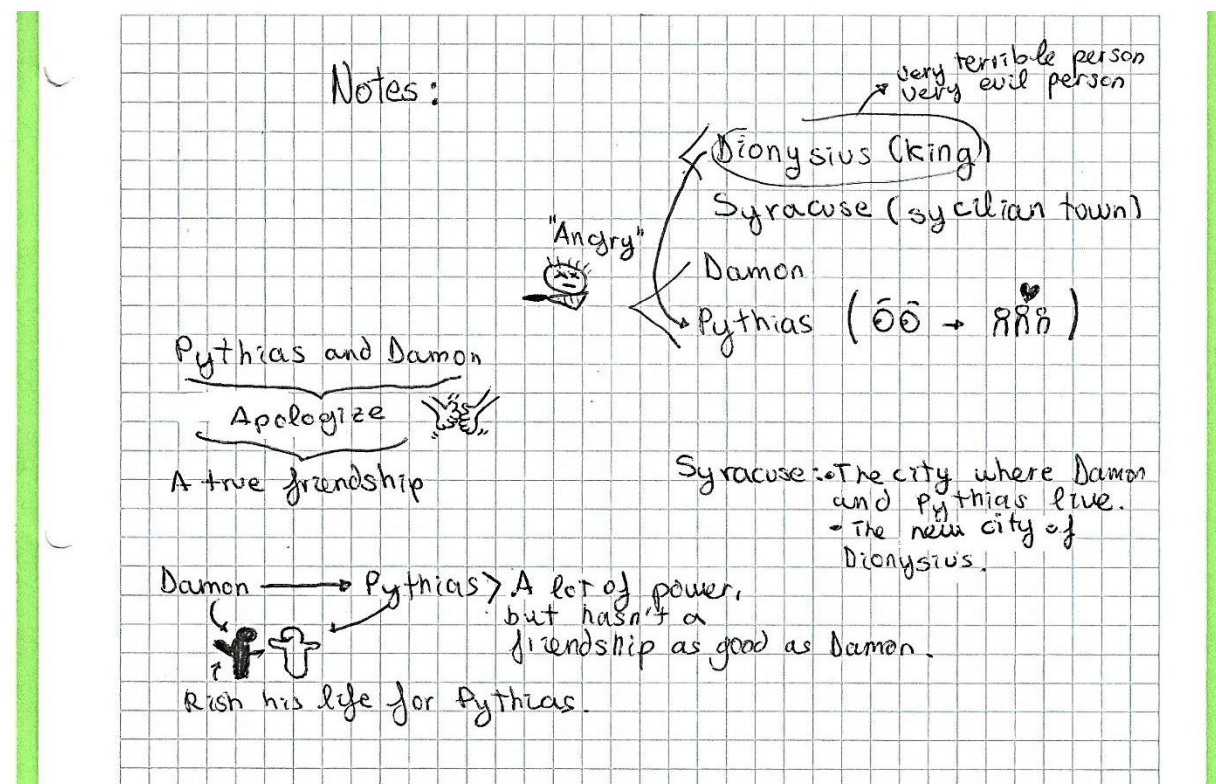 Notes:
very terrible person
very evil person
Dionysius (King)
Syracuse (sycilian town)
"Angry"
Damon
Pythias
Pythias and Damon
Apologize
A true friendship
Syracuse: • The city where Damon
and Pythias live.
• The new city of
Dionysius.
Damon → Pythias > A lot of power,
but hasn't a
friendship as good as Damon.
Rish his life for Pythias.